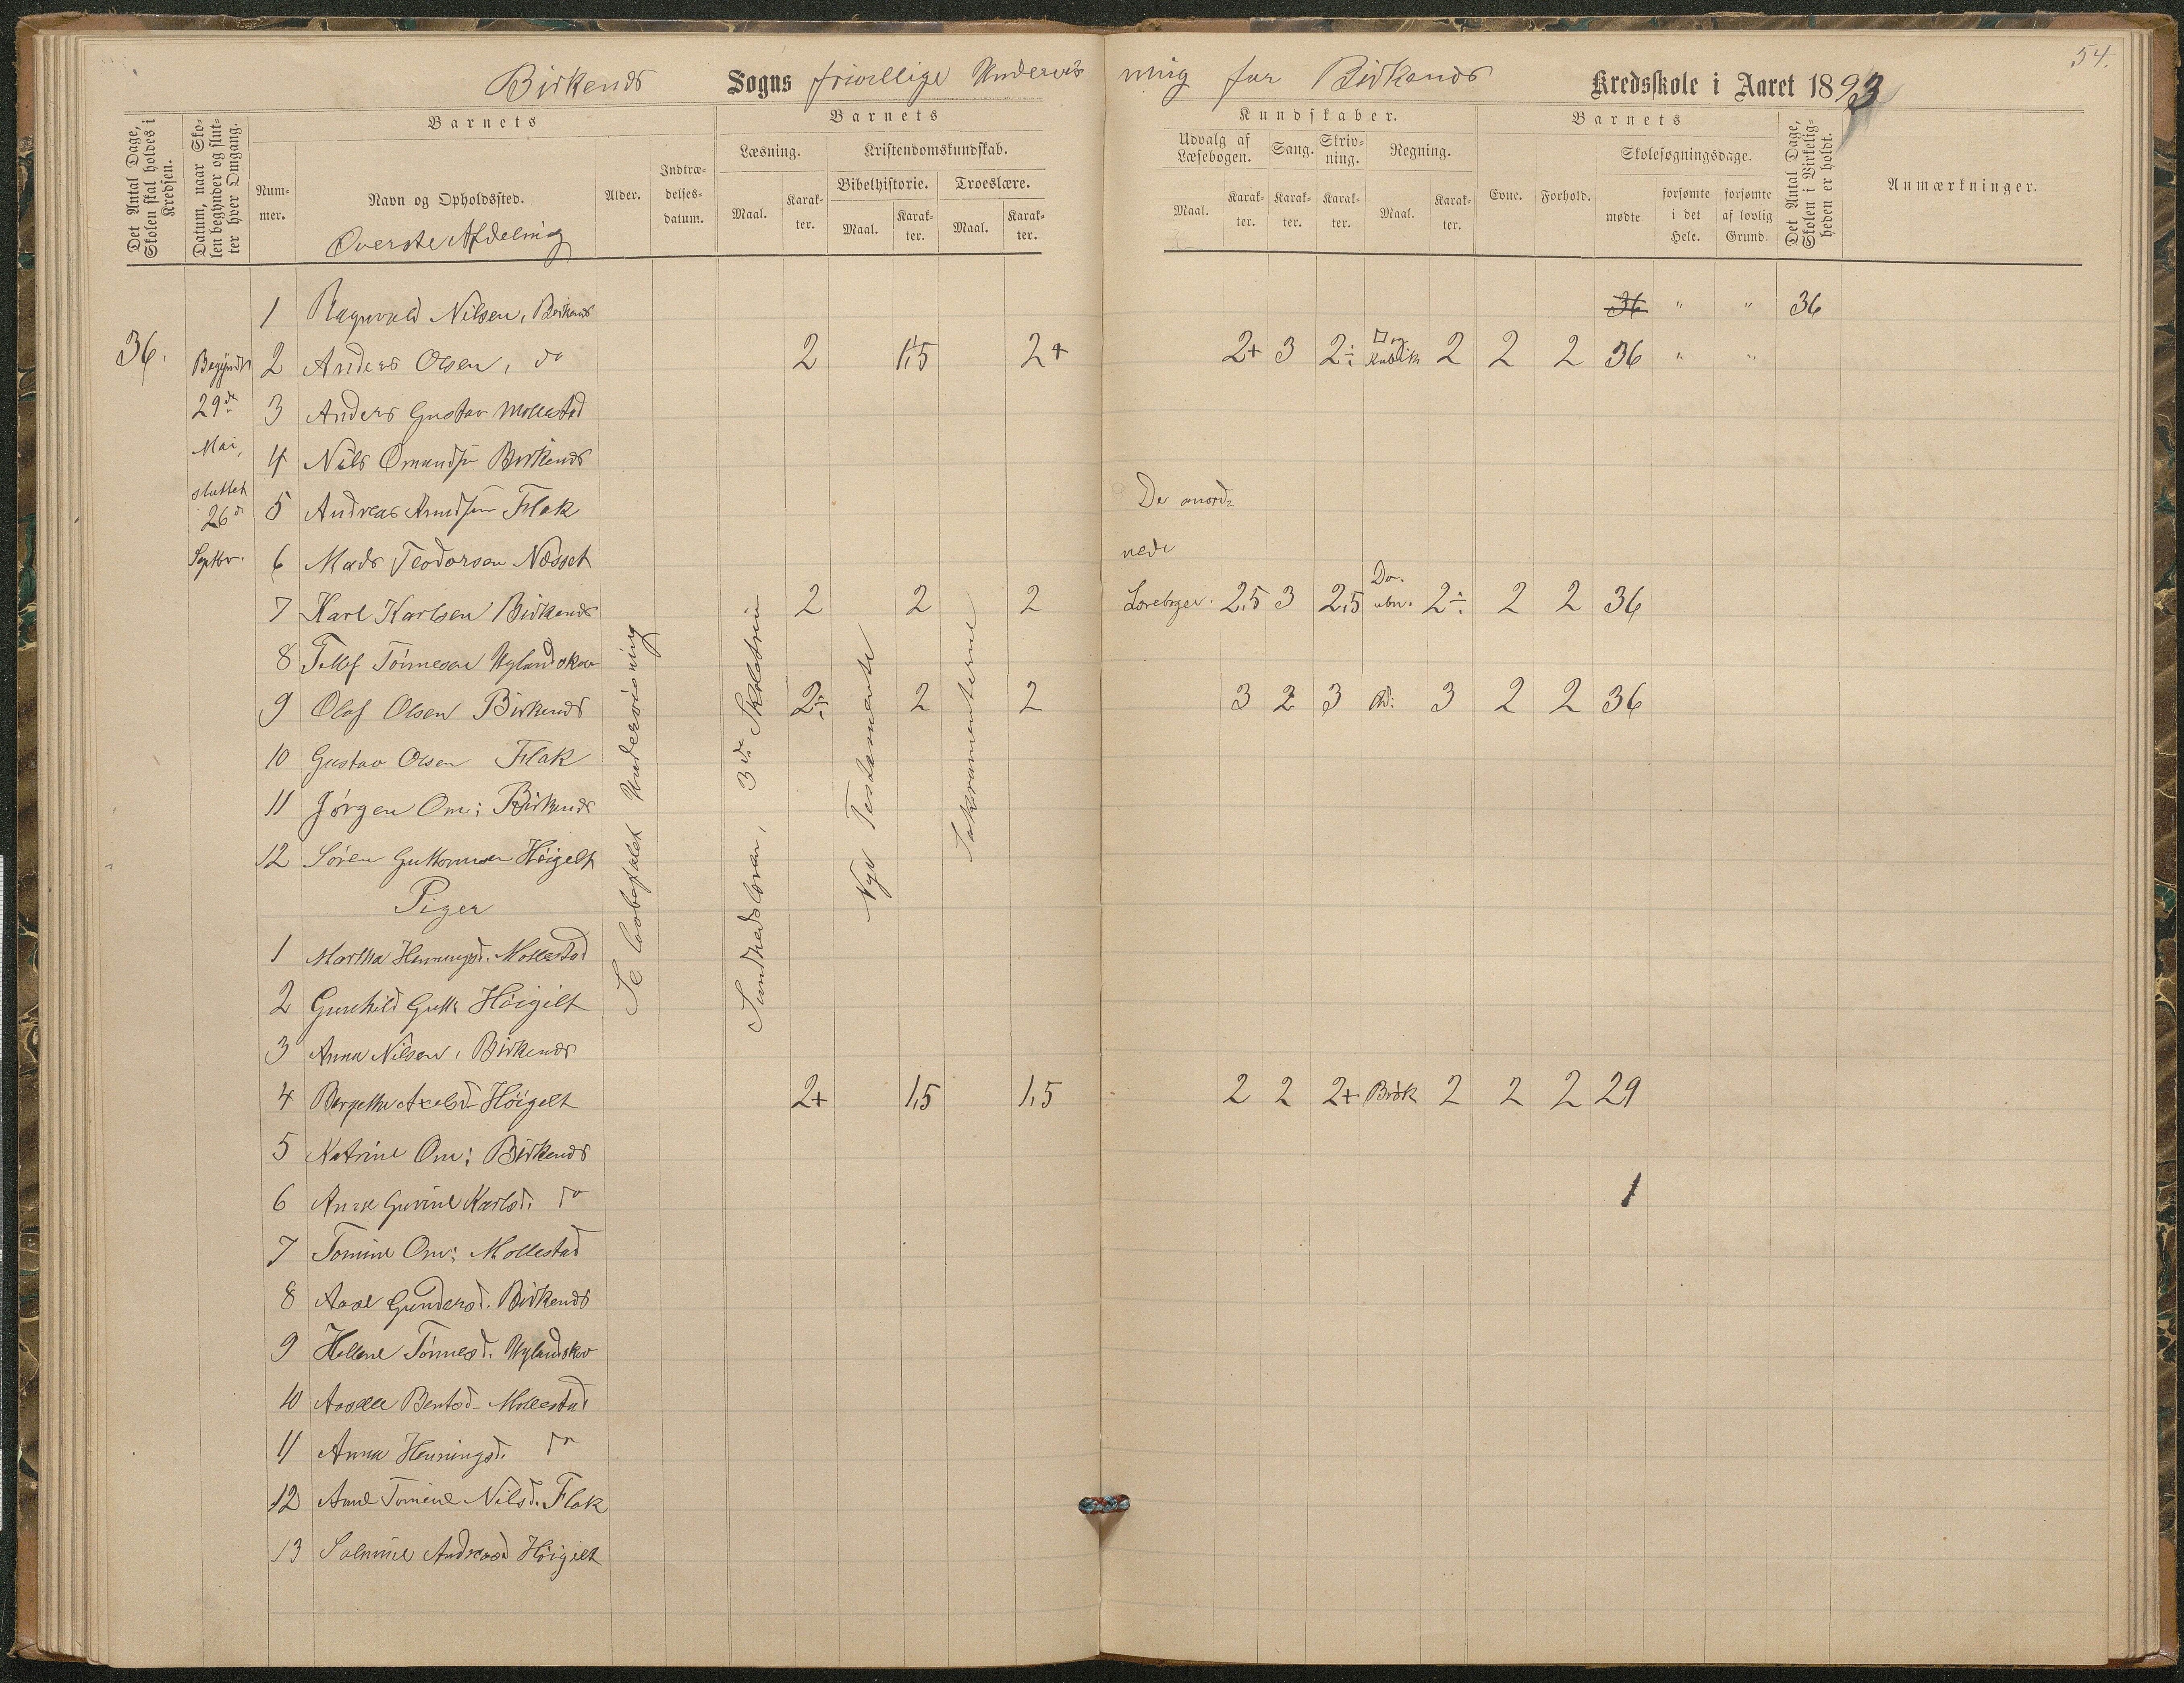 54.
Birkenes Sogns frivillige Undervis
ning for Birkenes Kredsskole i Aaret 1893
Det Antal Dage, Skolen skal holdes i Kredsen.
Datum, naar Skolen begynder og slutter hver Omgang.
Barnets
Nummer.
Navn og Opholdssted.
Øverste Afdeling
Alder.
Indtrædelsesdatum.
Barnets
Læsning.
Maal.
Karakter.
Kristendomskundskab.
Bibelhistorie.
Maal.
Karakter.
Troeslære.
Maal.
Karakter.
Kundskaber.
Udvalg af Læsebogen.
Maal.
Karakter.
Sang.
Karakter.
Skrivning.
Karakter.
Regning.
Maal.
Karakter.
Barnets
Evne.
Forhold.
Skolesøgningsdage.
mødte
forsømte i det Hele.
forsømte af lovlig Grund.
Det Antal Dage, Skolen i Virkeligheden er holdt.
Anmærkninger.
36.
Begyndt
29de
Mai,
sluttet
26de
Septbr.
1 Ragnvald Nilsen, Birkenes 36 " " 36
2 Anders Olsen, do 2 1,5 2+ 2+ 3 2÷ □ og Kubik 2 2 2 36 " "
3 Anders Gustav Mollestad
4 Nils Omundsen Birkenes
5 Andreas Knudsen Flak
6 Mads Teodorsen Næsset
7 Karl Karlsen Birkenes 2 2 2 2,5 3 2,5 Do. ubn. 2÷ 2 2 36
8 Tellef Tønnesen Uglandskov
9 Olaf Olsen Birkenes 2÷ 2 2 3 2 3 3 2 2 36
10 Gustav Olsen Flak
11 Jørgen Om: Birkenes
12 Søren Guttormsen Høigilt
Piger
1 Martha Henningsd. Mollestad
2 Gunhild Gutt: Høigilt
3 Anna Nilsen, Birkenes
4 Bergethe Axelsd. Høigilt 2+ 1,5 1,5 2 2 2+ Brøk 2 2 2 29
5 Katrine Om: Birkenes
6 Anne Gurine Karlsd. do
1
7 Tomine Om: Mollestad
8 Aase Gundersd. Birkenes
9 Hellene Tønnesd. Uglandskov
10 Aaselle Bentsd. Mollestad
11 Anna Henningsd. do
12 Anne Tomine Nilsd. Flak
13 Salmine Andreasd Høigilt
Se lovbefalet Undervisning
Sundhedslæren, 3de Skoletrin
Nye Testamente
Sakramenterne
De anord=
nede
Lærebøger.